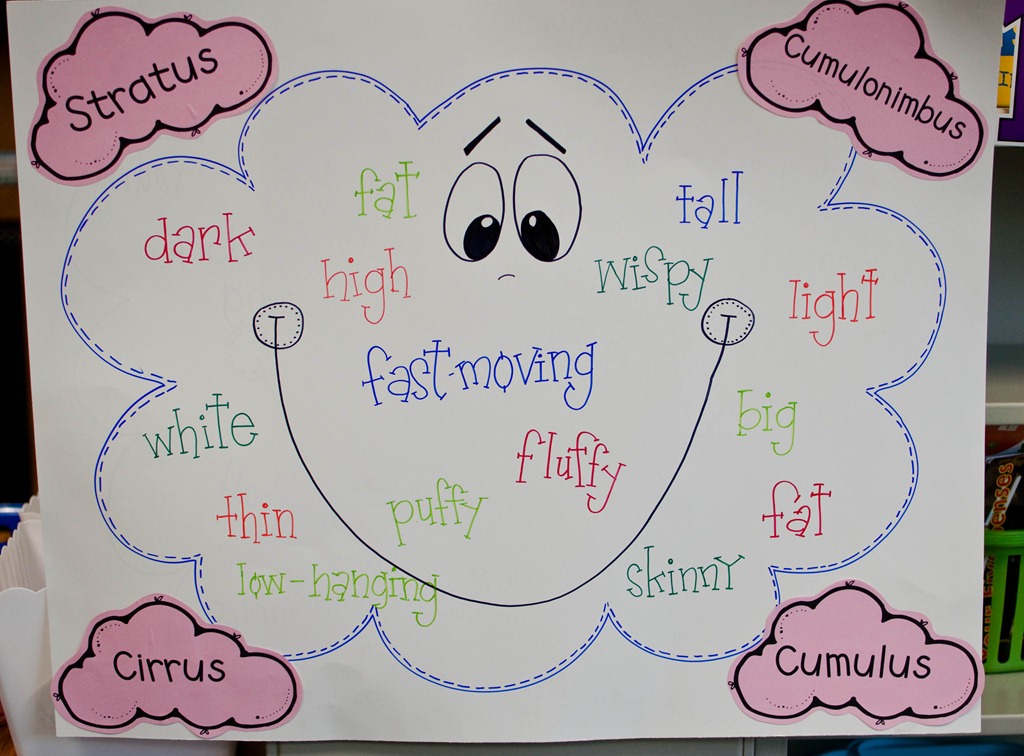 Stratus
Cumulonimbus
fat
tall
dark
high
wispy
light
fast-moving
white
big
fluffy
thin
puffy
fat
low-hanging
skinny
Cirrus
Cumulus
enses